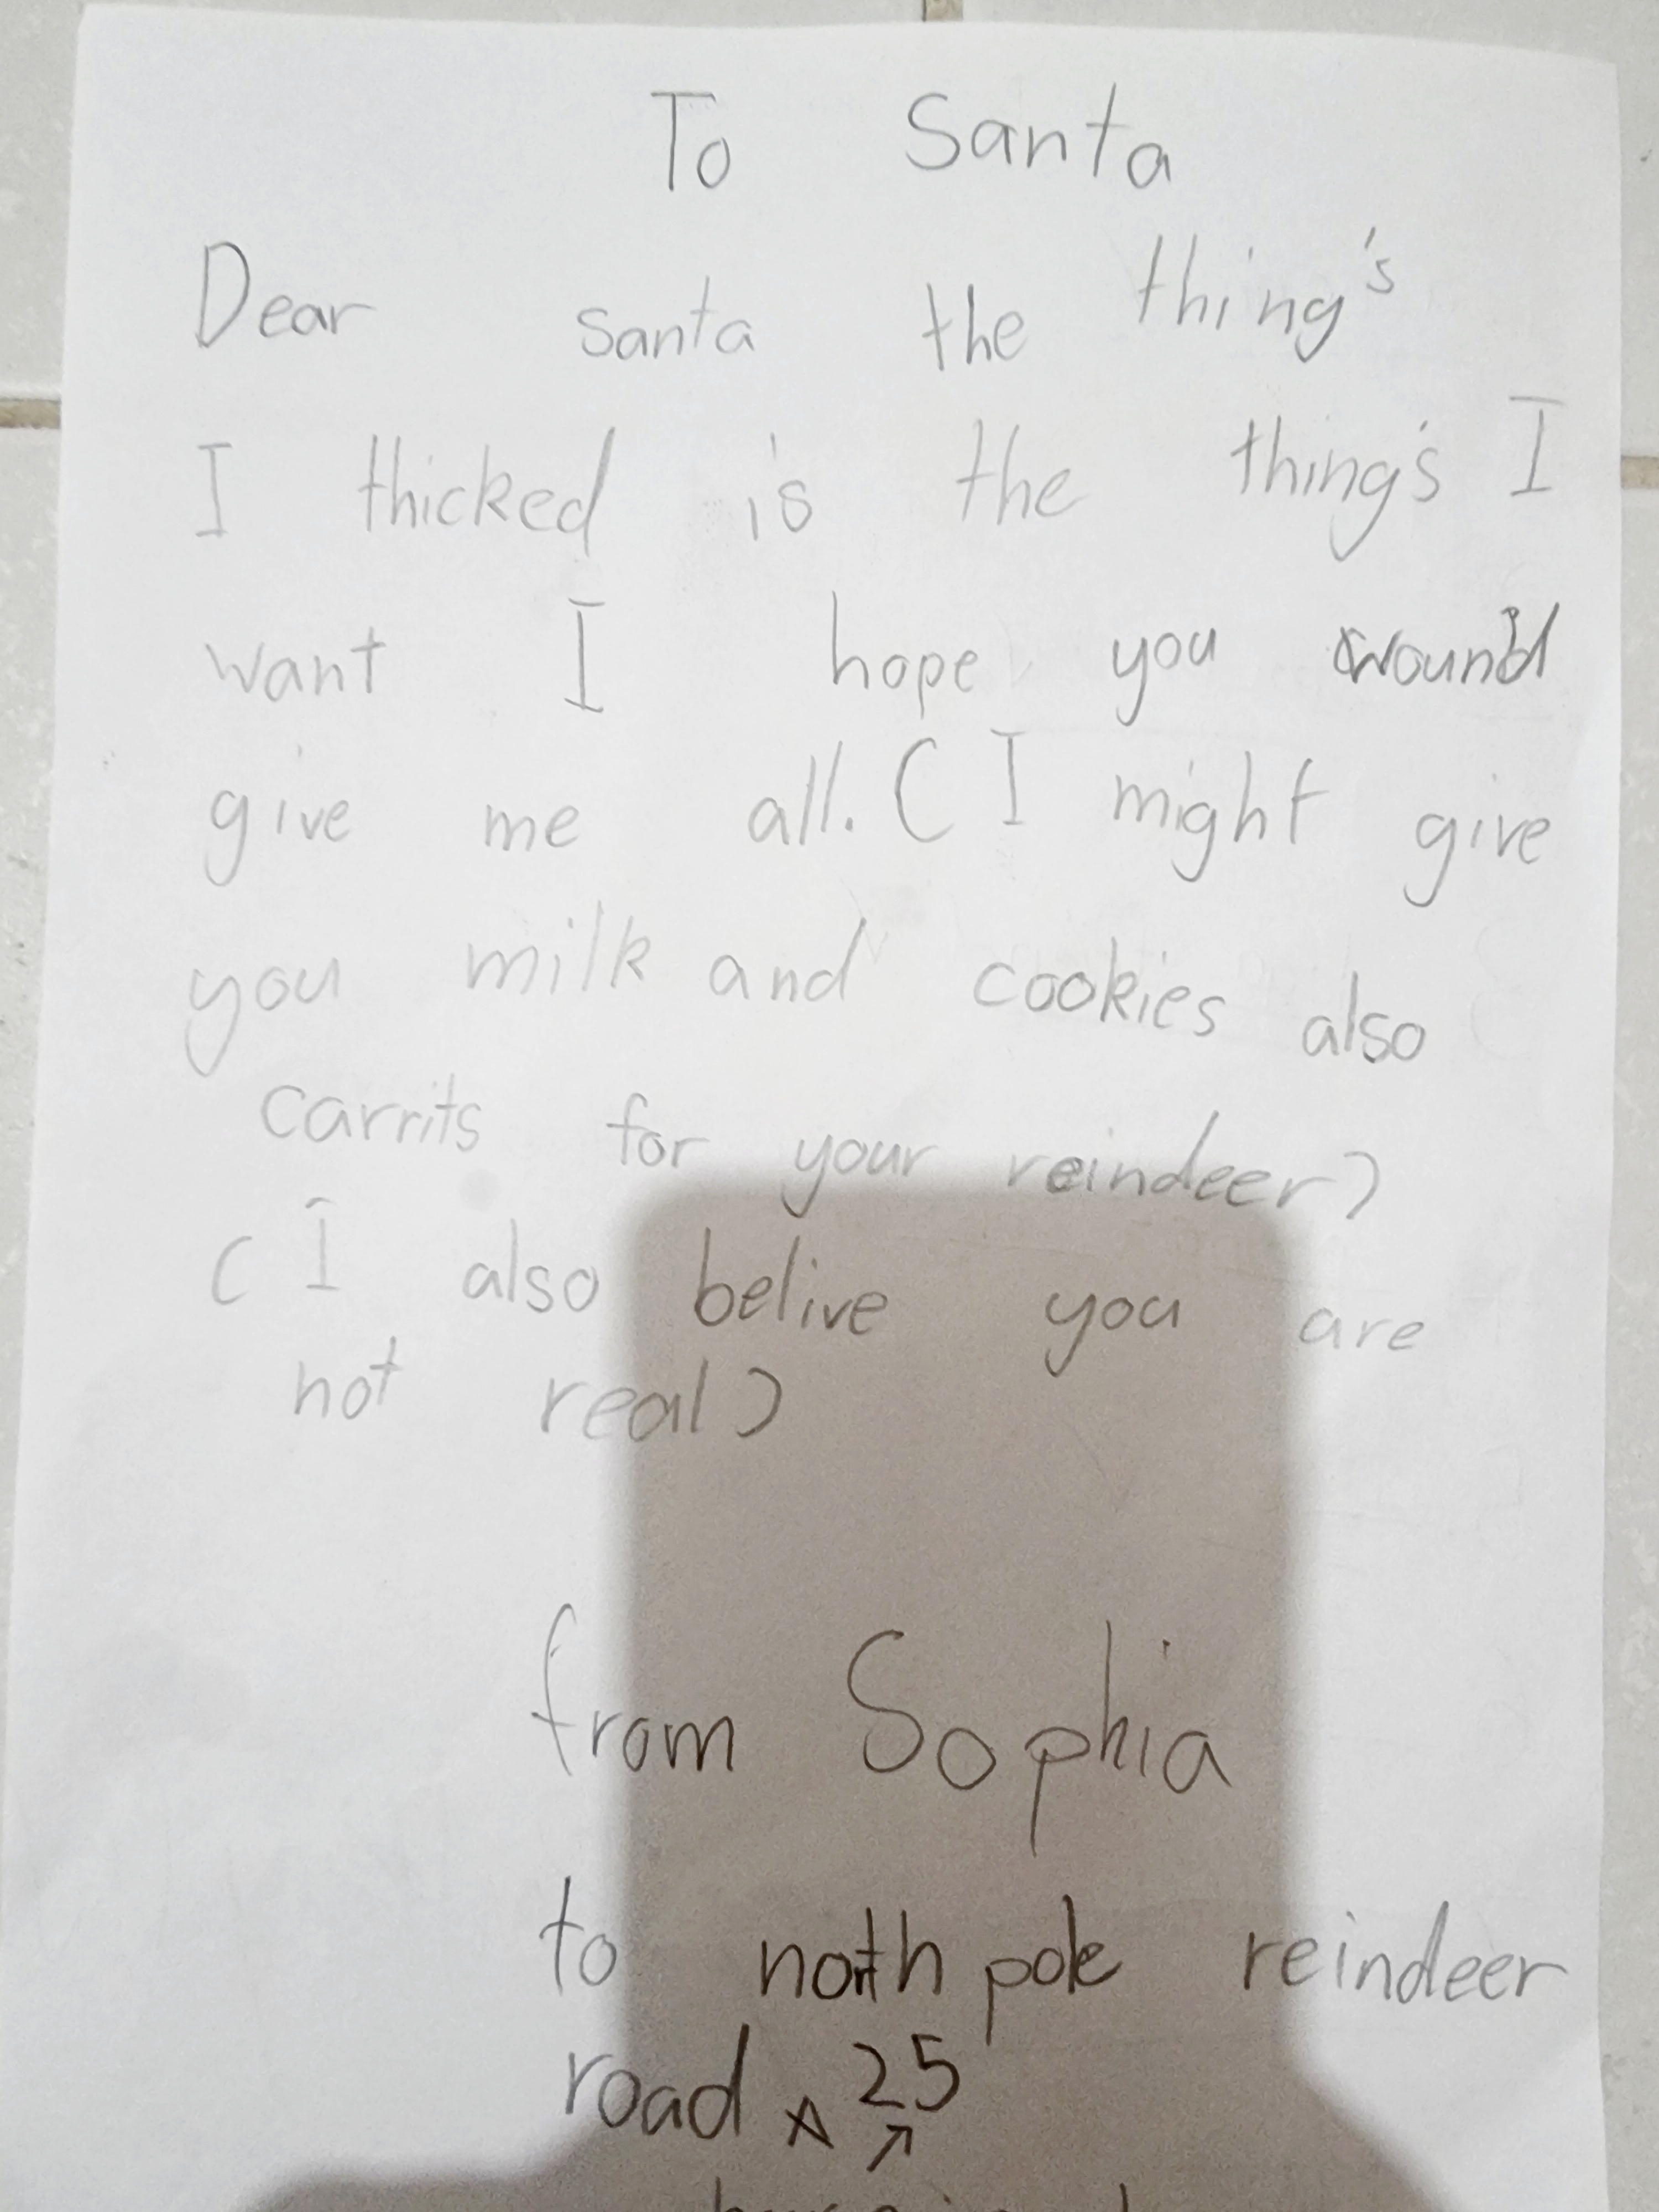 To Santa
Dear santa the thing's
I thicked is the thing's I
want I hope you wound
give me all. ( I might give
you milk and cookies also
carrits for your reindeer)
( I also belive you are
not real)
from Sophia
to north pole reindeer
road 25